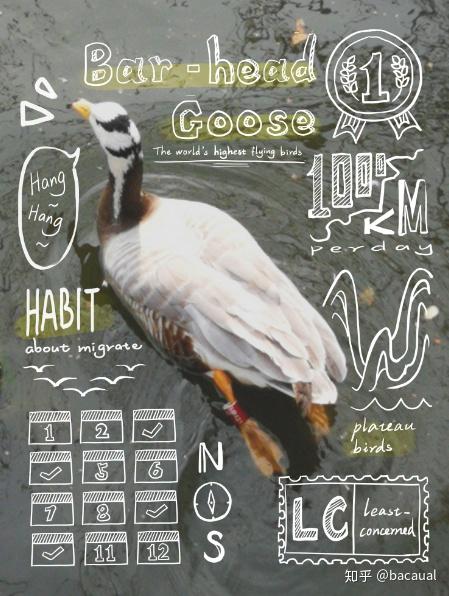 Bar-head
Goose
The world's highest flying birds
1
Hang
Hang
~
1000
KM
per day
HABIT
about migrate
W
plateau
birds
1 2 ✓
✓ 5 6
7 8 ✓
✓ 11 12
N
S
LC
least-
concerned
知乎 @bacaual